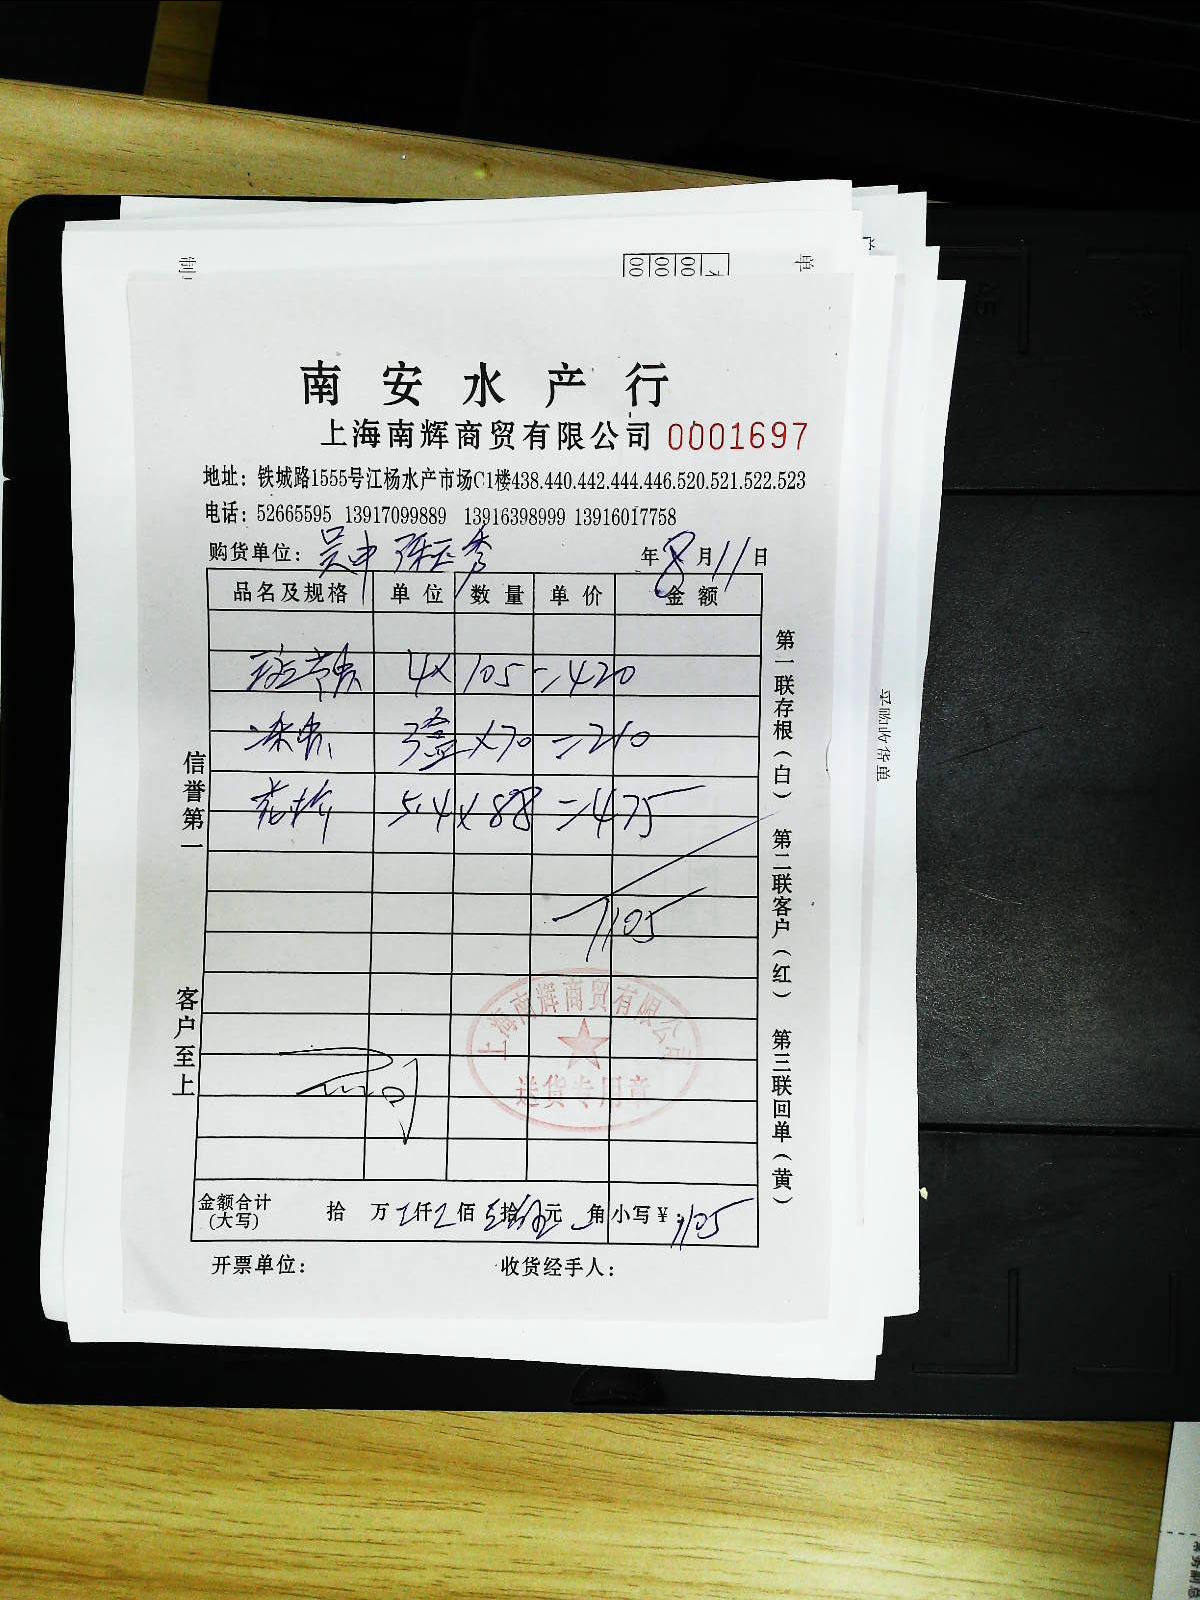 制
00 00 00
单
南安水产行
上海南辉商贸有限公司 0001697
地址：铁城路1555号江杨水产市场C1楼438.440.442.444.446.520.521.522.523
电话：52665595 13917099889 13916398999 13916017758
购货单位：吴中 张玉秀 年8月11日
品名及规格 单位 数量 单价 金额
4×105=420
3盒×70=210
5.4×88=475
1105
上海南辉商贸有限公司
送货专用章
金额合计 拾 万 仟 佰 拾 元 角 小写￥：1105
(大写)
开票单位： 收货经手人：
信誉第一
客户至上
第一联存根（白） 第二联客户（红） 第三联回单（黄）
采购收货单
A5